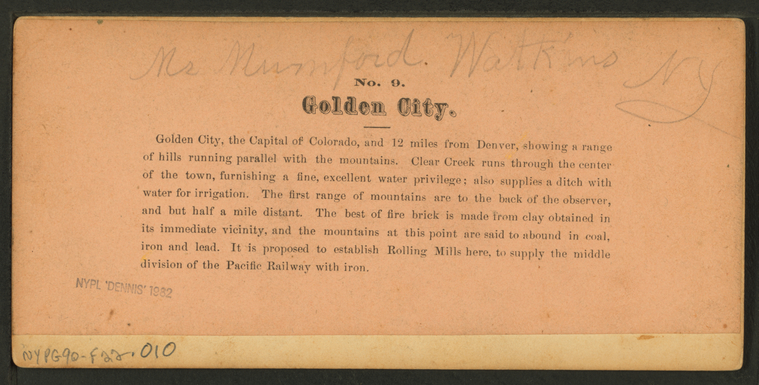 Mr Mumford. Watkins NY
No. 9.
Golden City.
Golden City, the Capital of Colorado, and 12 miles from Denver, showing a range
of hills running parallel with the mountains. Clear Creek runs through the center
of the town, furnishing a fine, excellent water privilege; also supplies a ditch with
water for irrigation. The first range of mountains are to the back of the observer,
and but half a mile distant. The best of fire brick is made from clay obtained in
its immediate vicinity, and the mountains at this point are said to abound in coal,
iron and lead. It is proposed to establish Rolling Mills here, to supply the middle
division of the Pacific Railway with iron.
NYPL 'DENNIS' 1982
NYPG90-F22.010